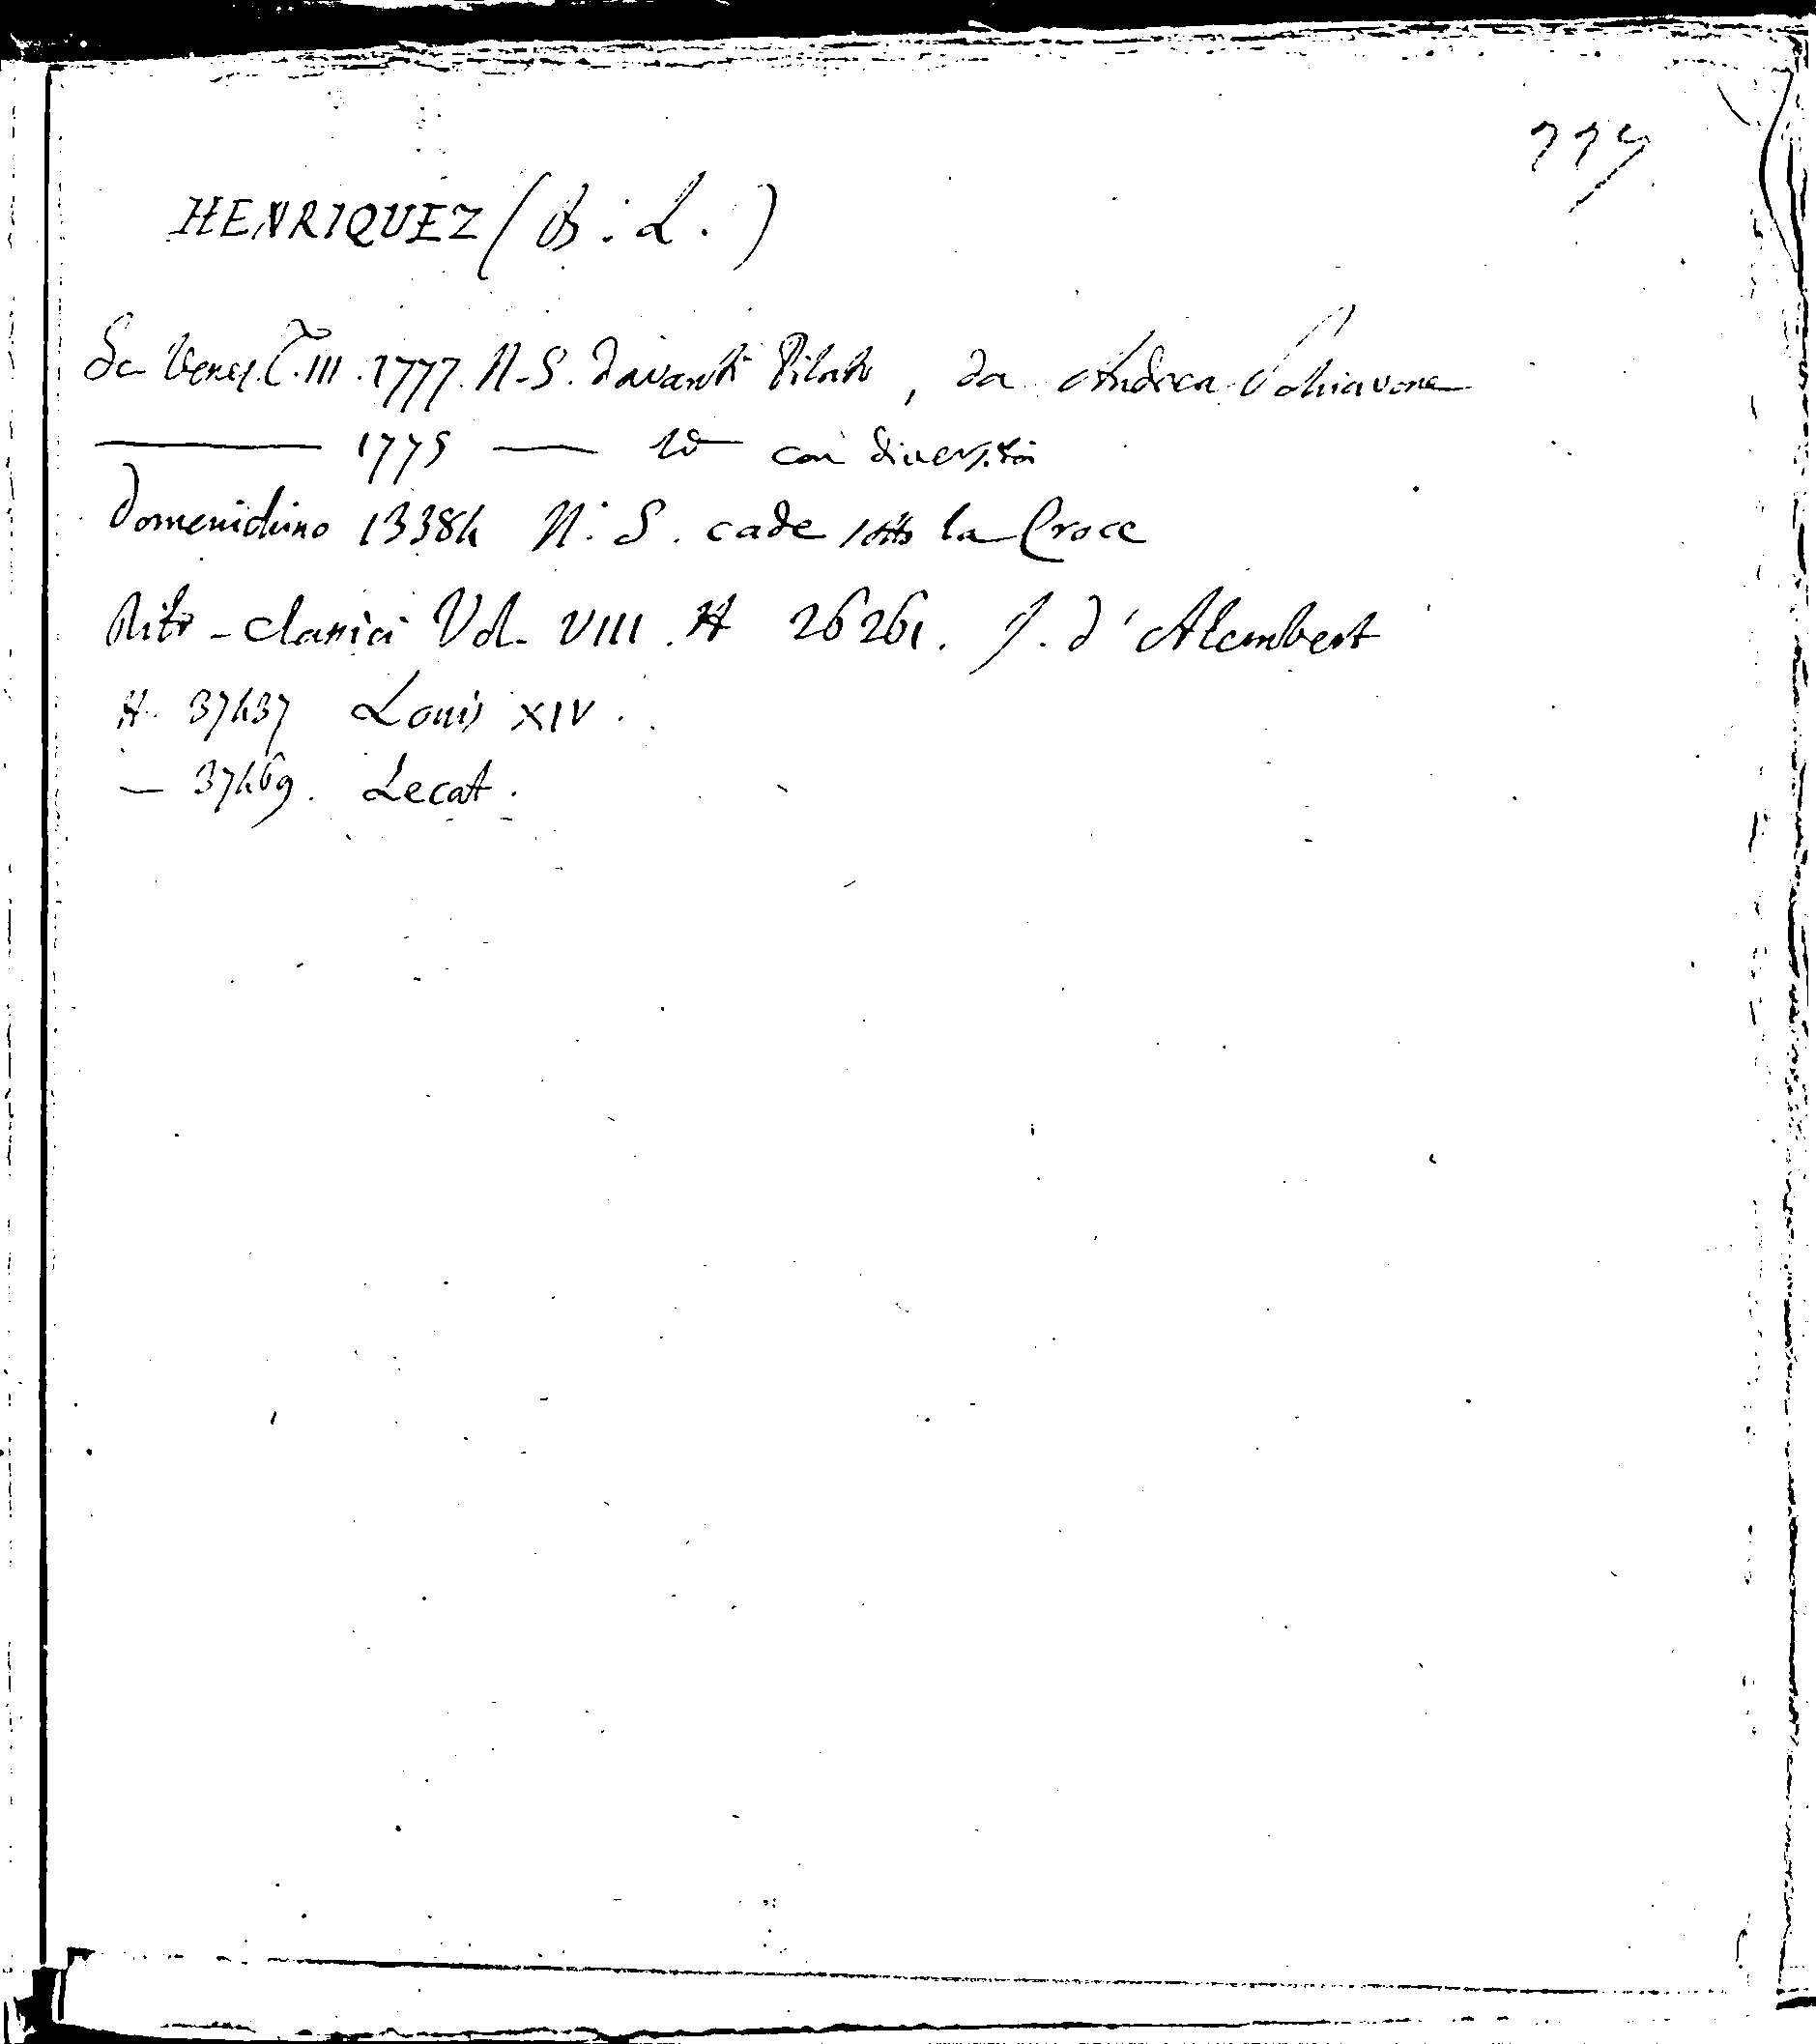 779
HENRIQUEZ (B: L.)
Sc. Venez. T. III. 1777. N. S. davanti Pilato, da Andrea Schiavone
——— 1775 — Id con diversità
Domenichino 13384 N. S. cade sotto la Croce
Ritr - classici Vol. VIII. H 26261. J. d'Alembert
H. 37437 Louis XIV.
— 37469. Lecat.